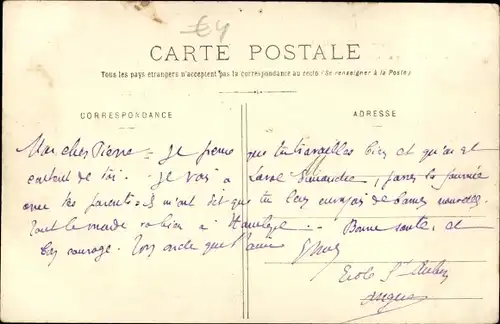 €4
CARTE POSTALE
Tous les pays étrangers n'acceptent pas la correspondance au recto (Se renseigner à la Poste)
CORRESPONDANCE
ADRESSE
Mon cher Pierre = Je pense que tu travailles bien et qu'on est
content de toi. Je vais à Dimanche, la journée
avec tes parents. Ils m'ont dit que tu leur envoyais de bonnes nouvelles.
Tout le monde va bien à Bonne santé, et
bon courage. Ton oncle qui t'aime
Ecole St Aubin
Angers